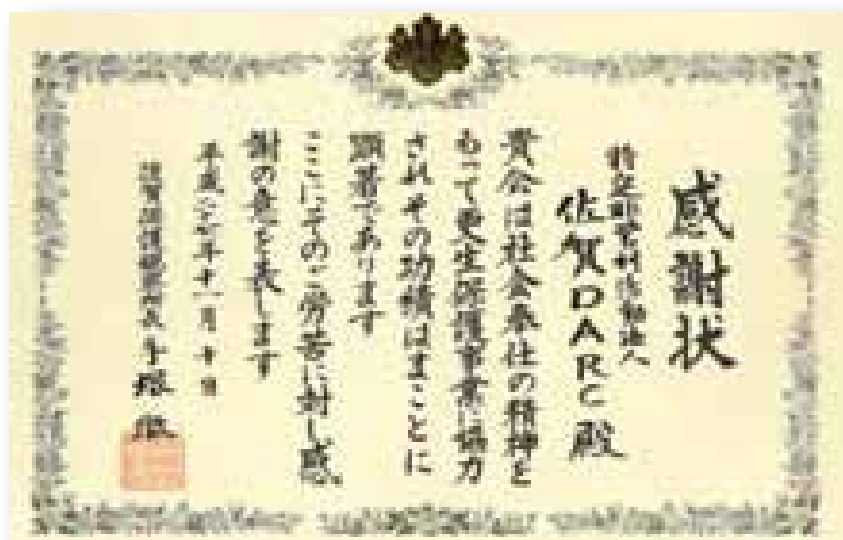 感謝状
特定非営利活動法人
佐賀DARC殿
貴会は社会奉仕の精神を
もって更生保護事業に協力
されその功績はまことに
顕著であります
ここにそのご労苦に対し感
謝の意を表します
佐賀保護観察所長